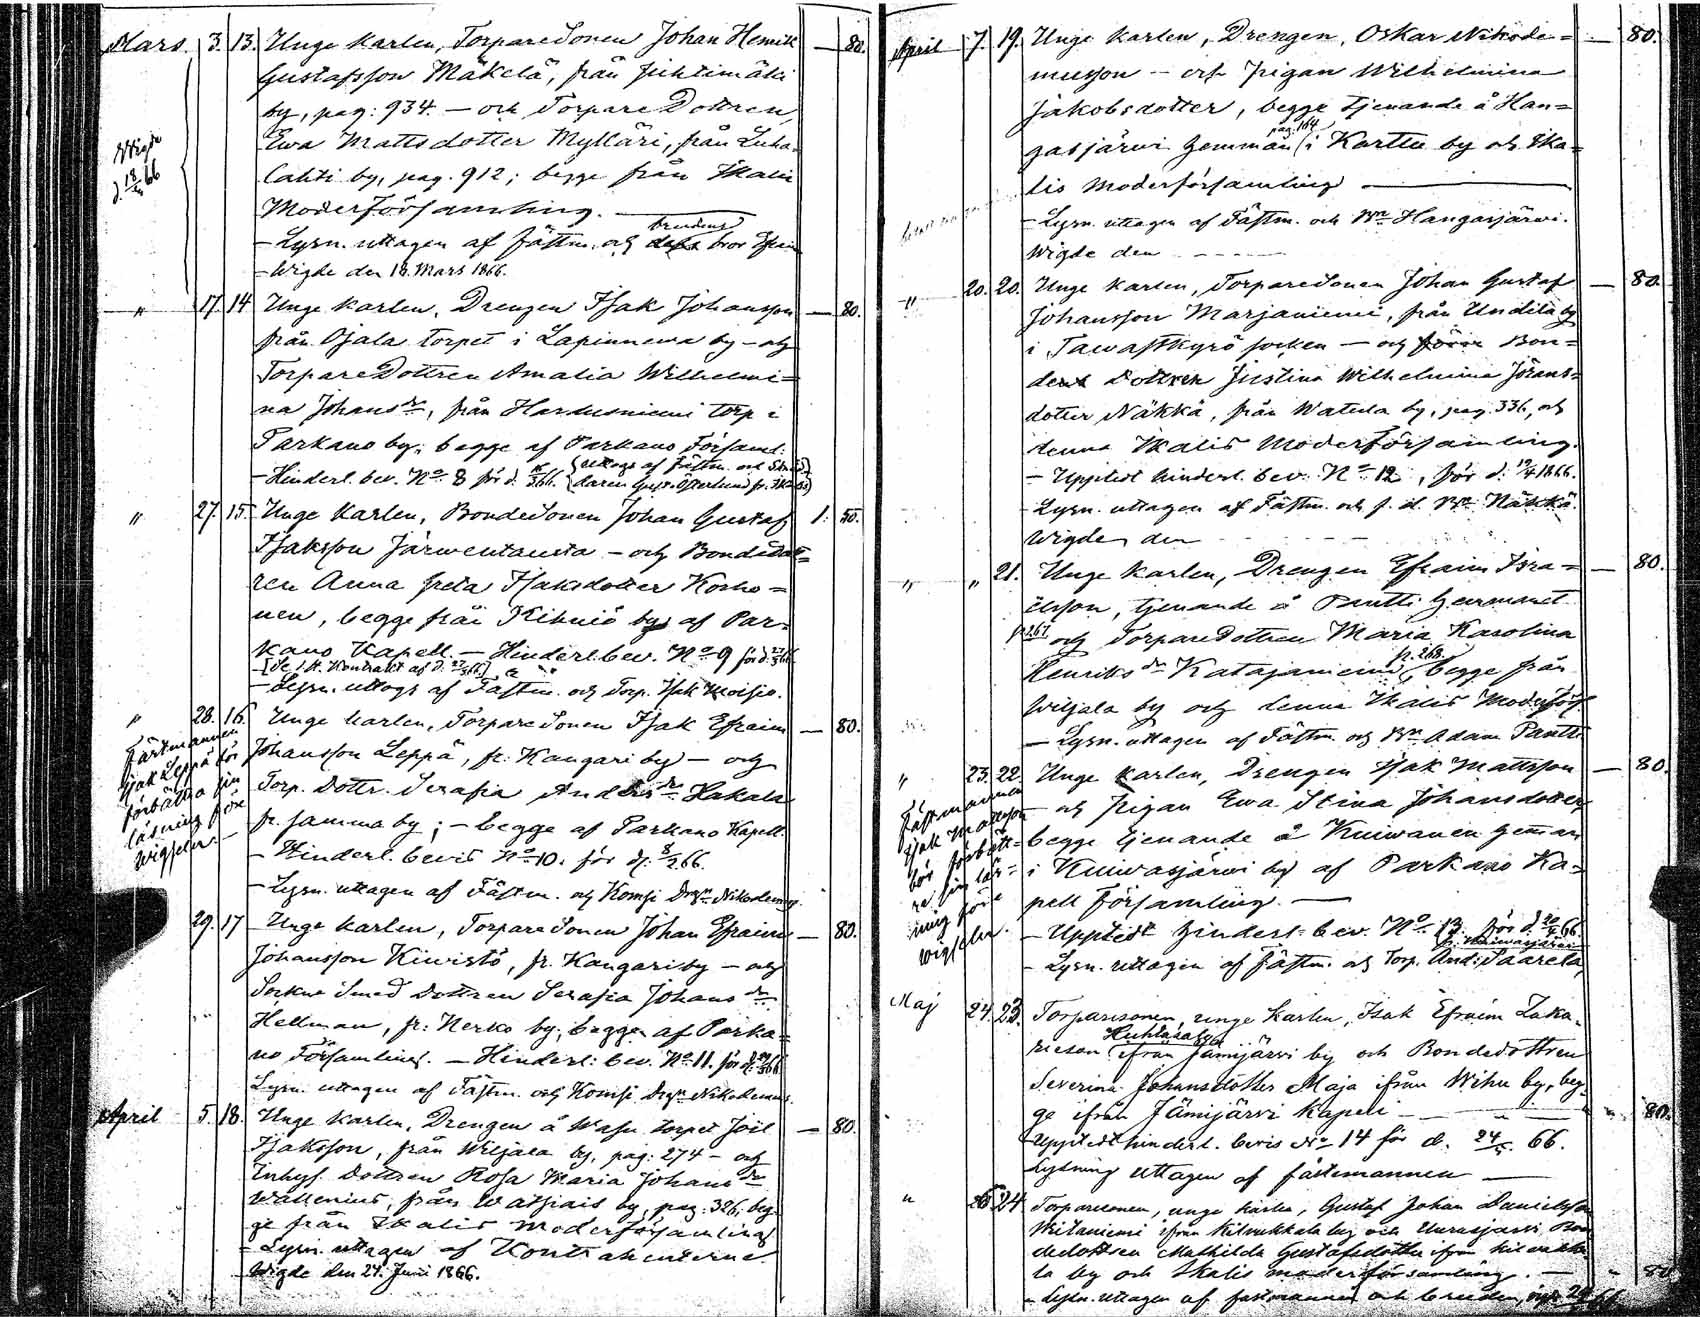 Mars. 3. 13. Unge karlen, TorpareSonen Johan Henrik — 80.
Gustafsson Mäkelä, från Juhtimäki
by, pag: 934. — och TorpareDottren
Ewa Mattsdotter Mylläri, från Luha-
lahti by, pag. 912; begge från Ikalis
Moderförsamling. —
Wigde d. 18/3 66
— Lysn. uttagen af fästm. och brudens bror Efraim
— Wigde den 18. Mars 1866.
" 17. 14 Unge karlen, Drengen Isak Johansson — 80.
från Ojala torpet i Lapinnewa by — och
TorpareDottren Amalia Wilhelmi=
na Johansdr, från Hardusniemi torp i
Parkano by; begge af Parkano Församl.
— Hinderl. bev. No 8 för d. /3 66. (uttogs af fästm. och
" 27. 15. Unge Karlen, BondeSonen Johan Gustaf 1. 50.
Isaksson Järwentausta — och Bondedott=
ren Anna Greta Isaksdotter Kosko=
nen, begge från Kihniö by af Par-
kano Kapell. — Hinderl. bev. No 9 för d. 27/3 66.
— Lysn. uttogs af Fästm. och Torp. Isak Moisio.
" 28. 16. Unge karlen, TorpareSonen Isak Efraim — 80.
Johansson Leppä, fr. Kangari by — och
Torp. Dottr. Serafia Andersdr Hakala
fr. samma by; — begge af Parkano Kapell.
— Hinderl. bevis No 10. för d. 8/2 66.
— Lysn. uttagen af Fästm. och Komsi Drgn Nikodemus.
Fästmannen
Isak Leppä bör
förbättra sin
läsning före
wigseln. —
29. 17 Unge karlen, TorpareSonen Johan Efraim — 80.
Johansson Kiuristö, fr. Kangari by — och
Sockne Smed Dottren Serafia Johansdr
Hellman, fr: Nerko by, begge af Parka=
no Församling. — Hinderl: bev. No 11. för d. 29/3 66
Lysn. uttagen af Fästm. och Komsi Drgn Nikodemus.
April 5. 18. Unge Karlen, Drengen å Wasu torpet Joil — 80.
Isaksson, från Wiljala by, pag: 274 — och
Inhys. Dottren Rosa Maria Johansdr
Wallenius, från Watsiais by, pag: 326; beg-
ge från Ikalis moderförsamling.
— Lysn. uttagen af Kontrahenterne.
Wigde den 24. Juni 1866.
April 7. 19. Unge Karlen, Drengen, Oskar Nikode= — 80.
musson — och pigan Wilhelmina
Jakobsdotter, begge tjenande å Han=
gasjärwi Hemman (pag. 164 i Karttu by och Ika=
lis moderförsamling —
— Lysn. uttagen af Fästm. och Bn Hangasjärwi.
Wigde den
" 20. 20. Unge karlen, TorpareSonen Johan Gustaf — 80.
Johansson Marjaniemi, från Undila by
i Tawastkyrö socken — och Bon=
de Dottren Justina Wilhelmina Jörans=
dotter Näkkä, från Watula by, pag. 336, och
denna Ikalis Moderförsamling.
— Upptedt hinderl. bev. No 12, för d. 19/4 1866.
— Lysn. uttagen af Fästm. och Bn Näkkä.
Wigde den
" " 21. Unge Karlen, Drengen Efraim Isra= — 80.
elsson, tjenande å Pantti hemmanet
p. 267 och TorpareDottren Maria Karolina
Henriksdr Katajaniemi p. 268, begge från
Wiljala by och denna Ikalis Moderförs.
— Lysn. uttagen af Fästm. och Bn Adam Pantti
" 23. 22. Unge Karlen, Drengen Isak Mattsson — 80.
— och pigan Ewa Stina Johansdotter
begge tjenande å Kuiwanen hemman
i Kuiwasjärwi by af Parkano Ka=
pell Församling. —
Fästmannen
Isak Mattsson
bör förbätt=
re sin läs=
ning före
wigseln.
— Upptedt hinderl. bev. No 13 för d. 20/4 66.
— Lysn. uttagen af Fästm. och Torp. And: Saarela, fr. Kuiwasjärwi
Maj 24. 23. Torparesonen, unge karlen, Isak Efraim Zaka-
riesson Huhtasalo ifrån Jämijärvi by och Bondedottren
Severina Johansdotter Maja ifrån Wihu by, beg-
ge ifrån Jämijärvi kapell — " 80.
Upptedt hinderl. bevis No 14 för d. 24/5 66.
Lysning uttagen af fästemannen —
" 24 Torparesonen, unge karlen, Gustaf Johan Danielsson
ifrån by och Bon
dedottren Mathilda Gustafsdotter ifrån
la by och Ikalis moderförsamling. — " 80
— Lysn. uttagen af fästmannen och bruden,